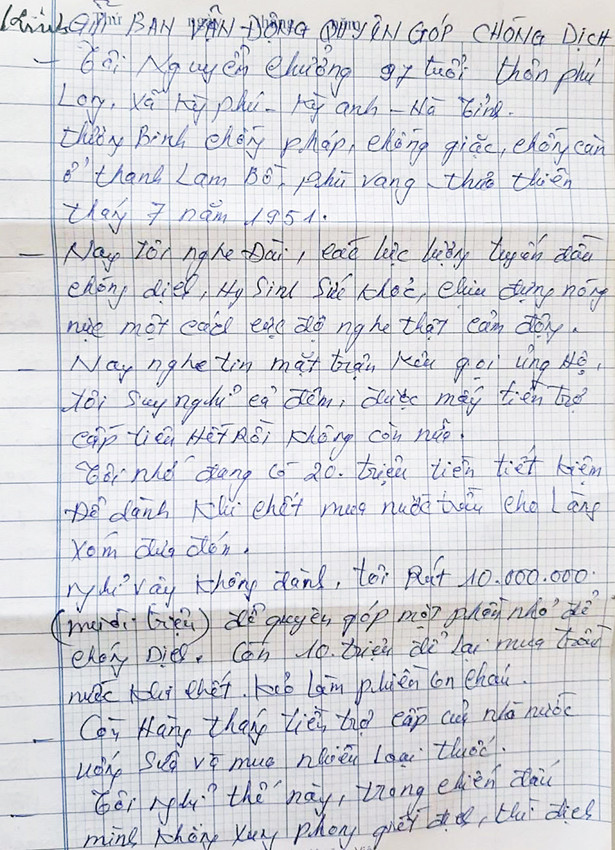 Kính GỬI BAN VẬN ĐỘNG QUYÊN GÓP CHỐNG DỊCH
- Tôi Nguyễn Chưởng 97 tuổi. thôn phú
Long, xã Kỳ phú - Kỳ anh - Hà Tĩnh.
thương Binh chống pháp, chống giặc, chống càn
ở thanh Lam Bồ, phú vang thừa thiên
tháng 7 năm 1951.
- Nay tôi nghe Đài, các lực lượng tuyến đầu
chống dịch, Hy Sinh Sức khỏe, chịu đựng nóng
nực một cách cực độ nghe thật cảm động.
- Nay nghe tin mặt trận kêu gọi ủng Hộ,
tôi Suy nghĩ cả đêm, được mấy tiền trợ
cấp tiêu HẾT RỒI không còn nữa.
Tôi nhớ đang có 20. triệu tiền tiết kiệm
Để dành khi chết mua nước trầu cho Làng
xóm đưa đón.
nghĩ vậy không đành, tôi Rút 10.000.000.
(mười triệu) để quyên góp một phần nhỏ để
chống Dịch. Còn 10. triệu để lại mua trầu
nước khi chết. kẻo làm phiền con cháu.
- Còn Hàng tháng tiền trợ cấp của nhà nước
uống Sữa và mua nhiều loại thuốc.
- Tôi nghĩ thế này, trong chiến đấu
mình không xung phong giết địch, thì địch